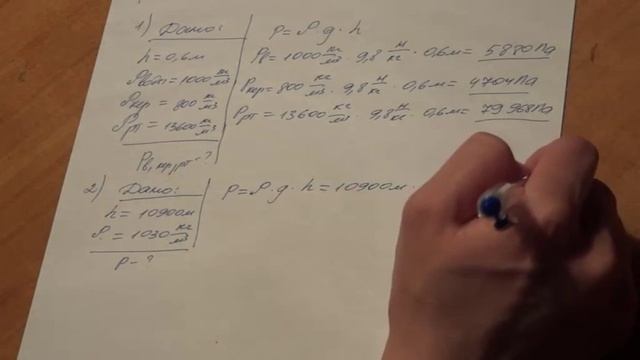 1) Дано:
h = 0,6м
ρводы = 1000 кг/м3
ρкер = 800 кг/м3
ρрт = 13600 кг/м3
Рв, кер, рт - ?
P = ρ · g · h
Рв = 1000 кг/м3 · 9,8 н/кг · 0,6м = 5880 Па
Ркер = 800 кг/м3 · 9,8 н/кг · 0,6м = 4704 Па
Ррт = 13600 кг/м3 · 9,8 н/кг · 0,6м = 79968 Па
2) Дано:
h = 10900м
ρ = 1030 кг/м3
P - ?
P = ρ · g · h = 10900м ·